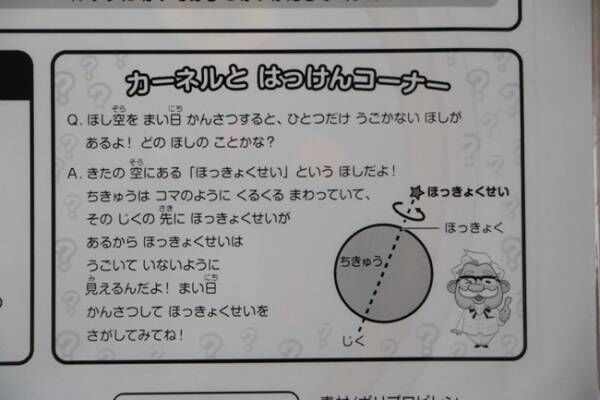 カーネルと はっけんコーナー
Q. ほし空を まい日 かんさつすると、ひとつだけ うごかない ほしが
あるよ! どの ほしの ことかな?
A. きたの 空にある「ほっきょくせい」という ほしだよ!
ちきゅうは コマのように くるくる まわっていて、
その じくの 先に ほっきょくせいが
あるから ほっきょくせいは
うごいて いないように
見えるんだよ! まい日
かんさつして ほっきょくせいを
さがしてみてね!
ほっきょくせい
ほっきょく
ちきゅう
じく